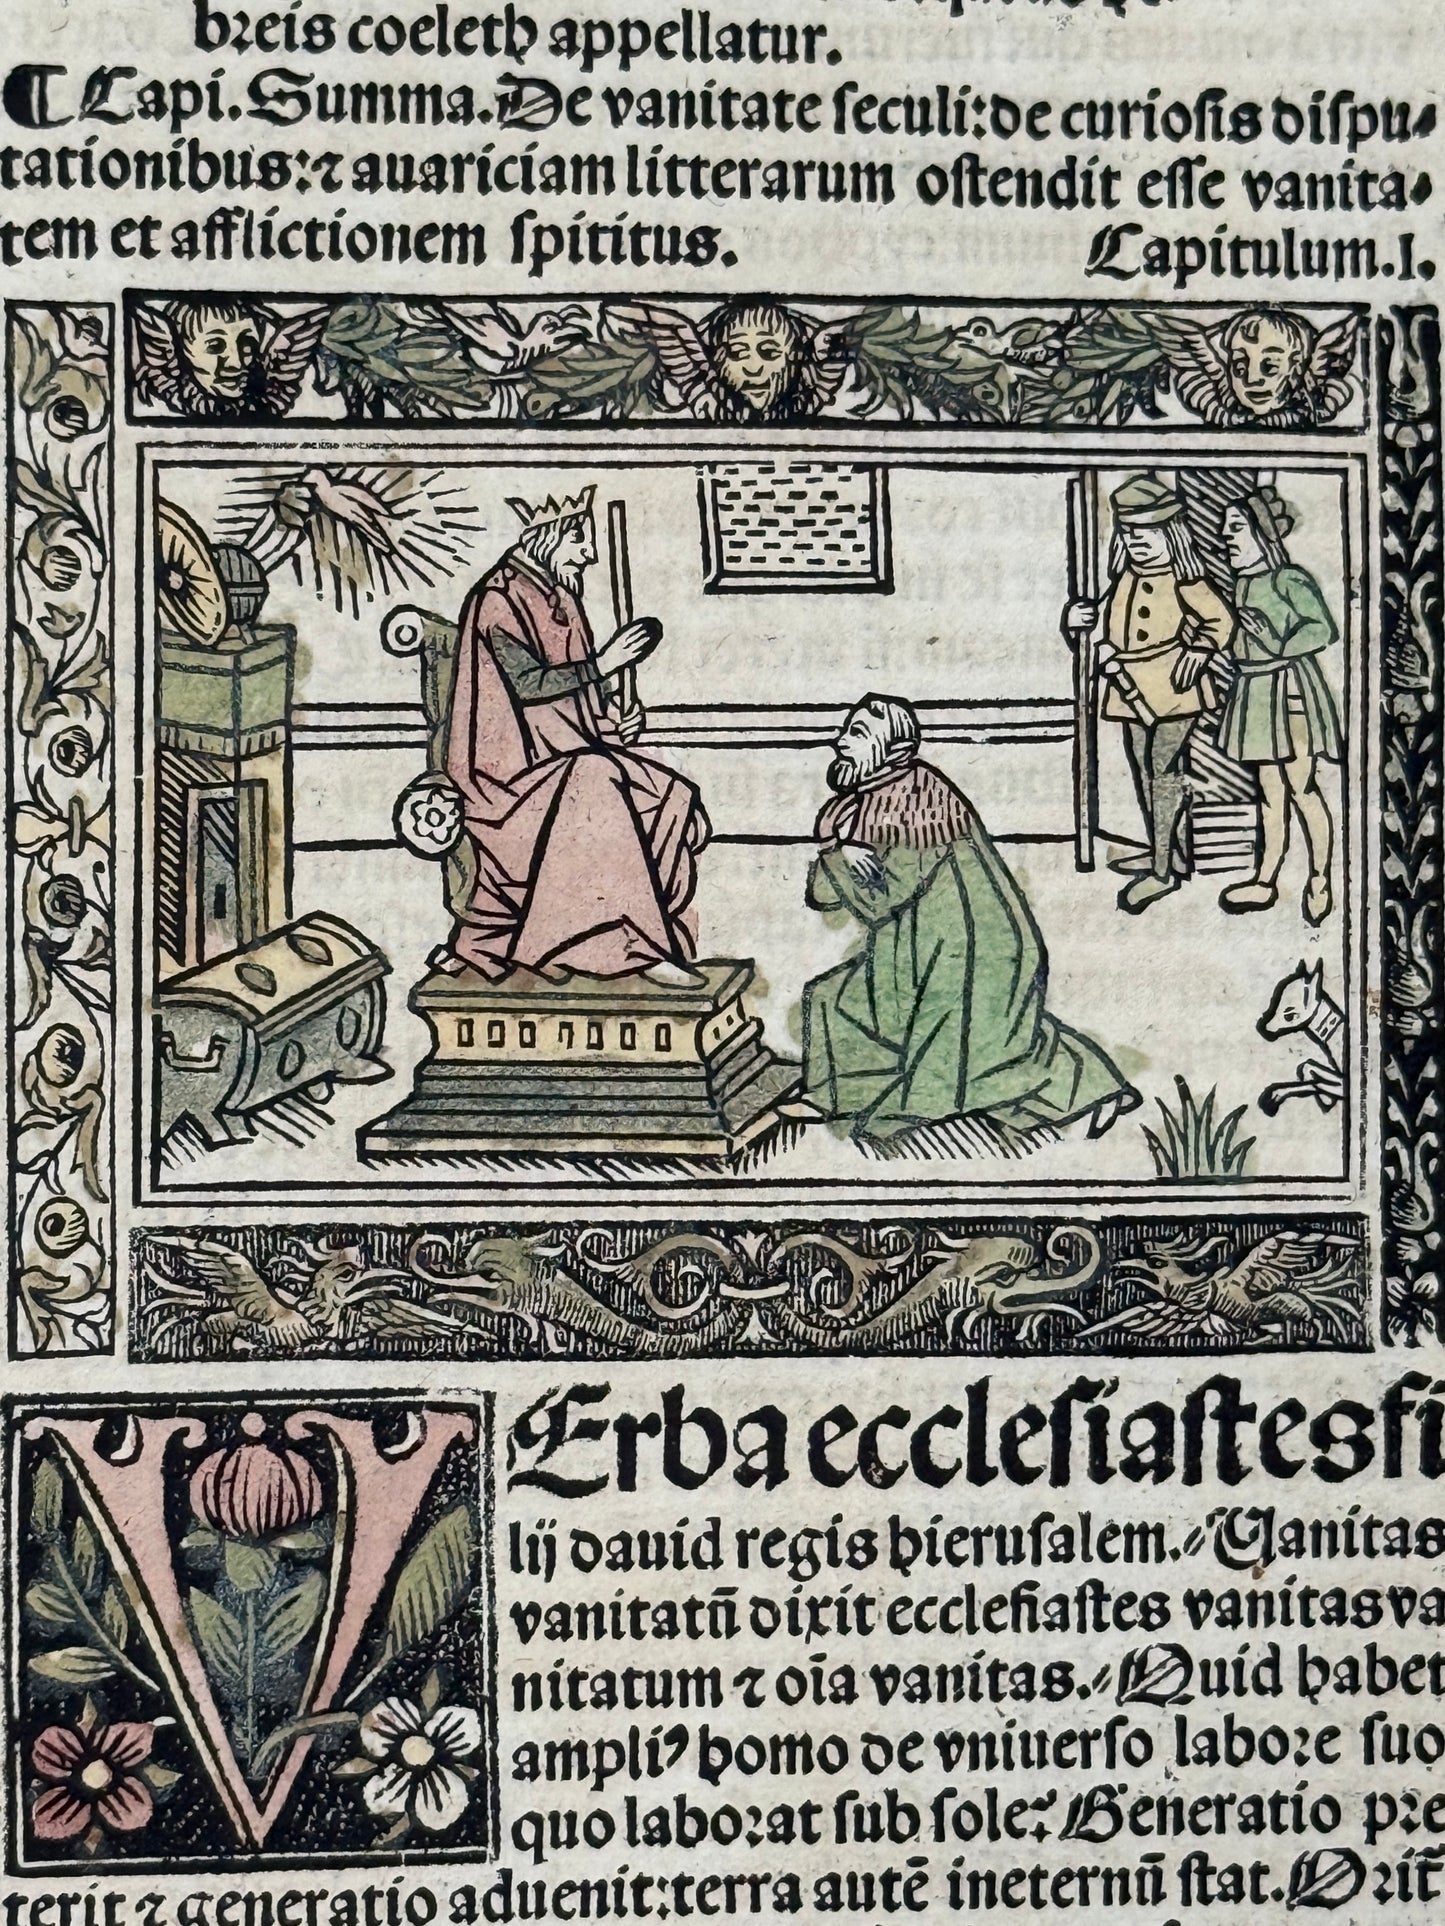 breis coeleth appellatur.
¶ Capi. Summa. De vanitate ſeculi: de curioſis diſpu⸗
tationibus: ⁊ auariciam litterarum oſtendit eſſe vanita⸗
tem et afflictionem ſpititus. Capitulum. I.
VErba eccleſiaſtes fi
lij dauid regis hieruſalem. Vanitas
vanitatū dixit eccleſiaſtes vanitas va
nitatum ⁊ oīa vanitas. Quid habet
ampliꝰ homo de vniuerſo labore ſuo
quo laborat ſub ſole? Generatio pre
terit ⁊ generatio aduenit: terra autē ineternū ſtat. Orit̄